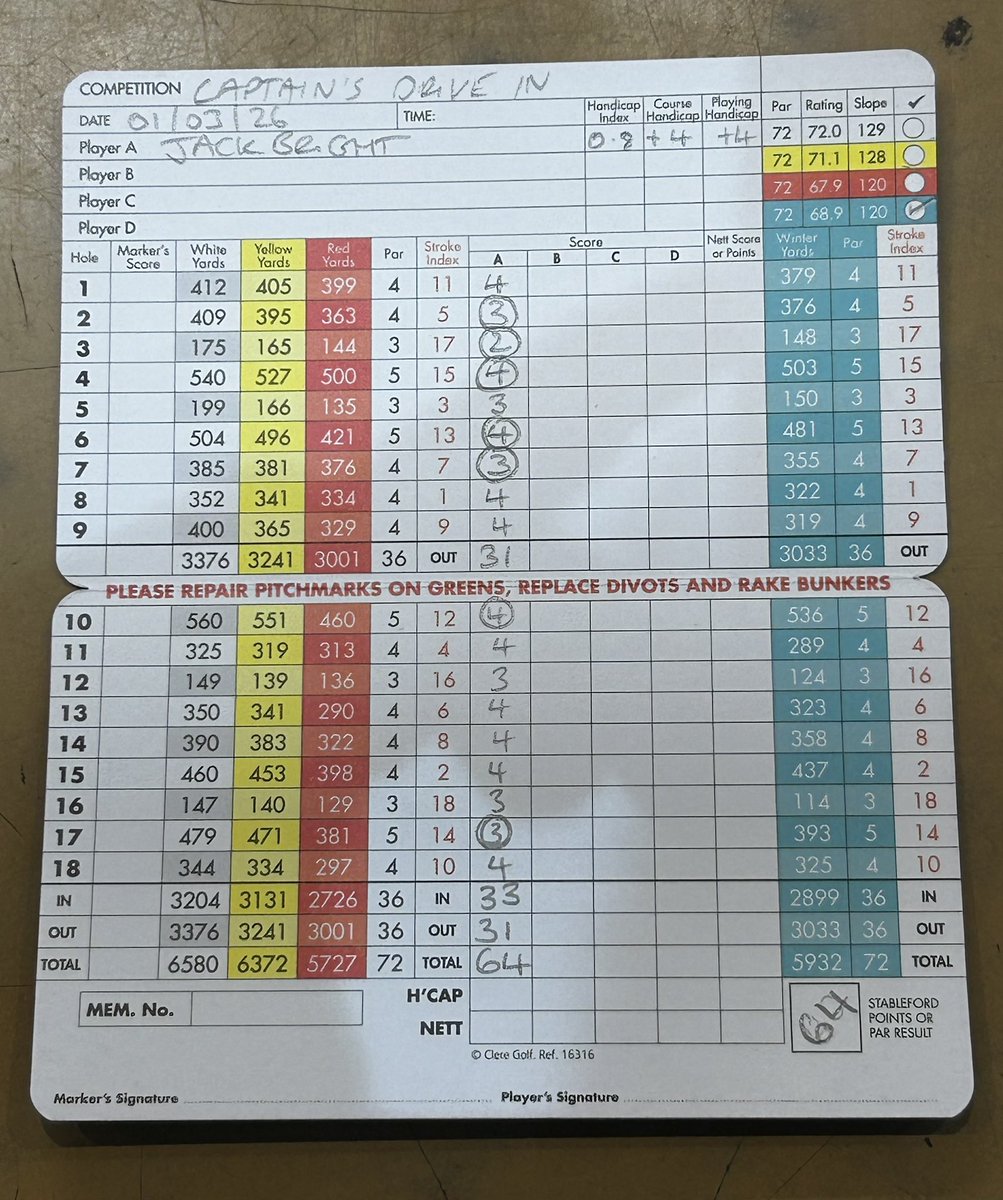 COMPETITION CAPTAIN'S DRIVE IN
DATE 01/03/26 TIME: Handicap Index Course Handicap Playing Handicap Par Rating Slope ✓
Player A JACK BRIGHT 0.8 +4 +4 72 72.0 129
Player B 72 71.1 128
Player C 72 67.9 120
Player D 72 68.9 120 ✓
Hole Marker's Score White Yards Yellow Yards Red Yards Par Stroke Index Score A B C D Nett Score or Points Winter Yards Par Stroke Index
1 412 405 399 4 11 4 379 4 11
2 409 395 363 4 5 3 376 4 5
3 175 165 144 3 17 2 148 3 17
4 540 527 500 5 15 4 503 5 15
5 199 166 135 3 3 3 150 3 3
6 504 496 421 5 13 4 481 5 13
7 385 381 376 4 7 3 355 4 7
8 352 341 334 4 1 4 322 4 1
9 400 365 329 4 9 4 319 4 9
3376 3241 3001 36 OUT 31 3033 36 OUT
PLEASE REPAIR PITCHMARKS ON GREENS, REPLACE DIVOTS AND RAKE BUNKERS
10 560 551 460 5 12 4 536 5 12
11 325 319 313 4 4 4 289 4 4
12 149 139 136 3 16 3 124 3 16
13 350 341 290 4 6 4 323 4 6
14 390 383 322 4 8 4 358 4 8
15 460 453 398 4 2 4 437 4 2
16 147 140 129 3 18 3 114 3 18
17 479 471 381 5 14 3 393 5 14
18 344 334 297 4 10 4 325 4 10
IN 3204 3131 2726 36 IN 33 2899 36 IN
OUT 3376 3241 3001 36 OUT 31 3033 36 OUT
TOTAL 6580 6372 5727 72 TOTAL 64 5932 72 TOTAL
MEM. No. H'CAP 64 STABLEFORD POINTS OR PAR RESULT
NETT
© Clere Golf. Ref. 16316
Marker's Signature Player's Signature